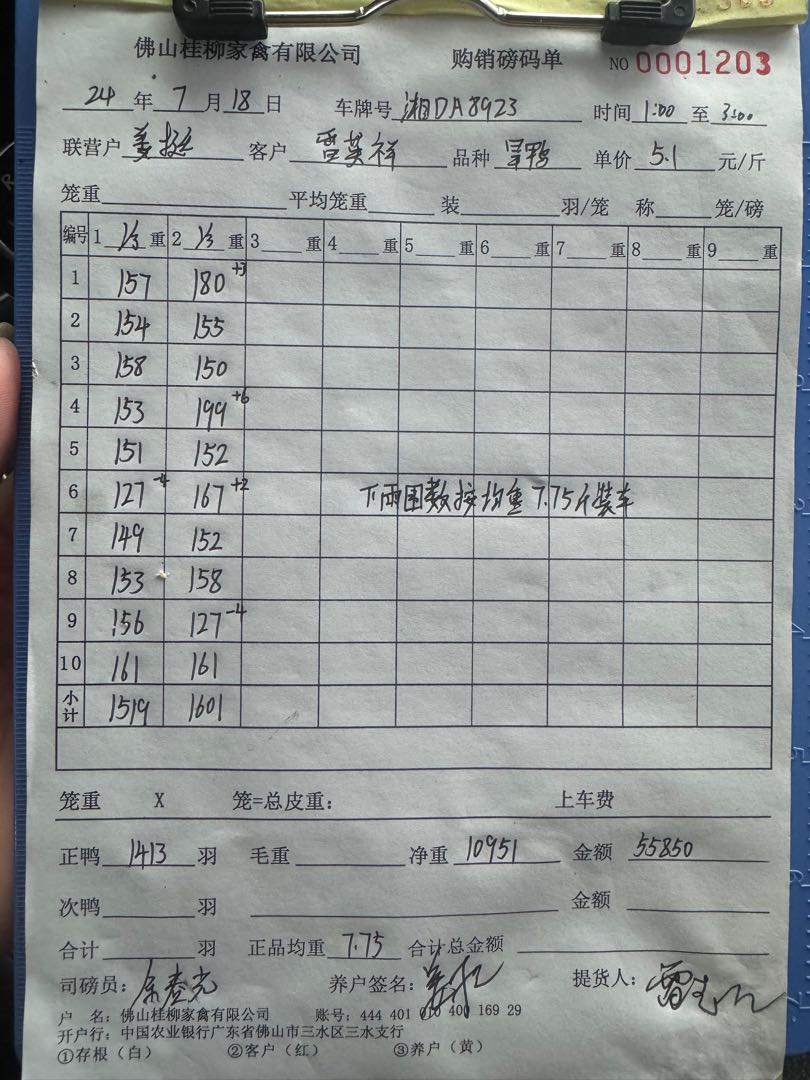 佛山桂柳家禽有限公司 购销磅码单 NO 0001203
24 年 7 月 18 日 车牌号 湘DA8923 时间 1:00 至 3:00
联营户 姜 客户 雷英祥 品种 单价 5.1 元/斤
笼重 平均笼重 装 羽/笼 称 笼/磅
编号 1 1/3 重 2 1/3 重 3 重 4 重 5 重 6 重 7 重 8 重 9 重
1 157 180 +3
2 154 155
3 158 150
4 153 199 +6
5 151 152
6 127 -4 167 +2 下雨围数按均重7.75斤装车
7 149 152
8 153 158
9 156 127 -4
10 161 161
小计 1519 1601
笼重 X 笼=总皮重： 上车费
正鸭 1413 羽 毛重 净重 10951 金额 55850
次鸭 羽 金额
合计 羽 正品均重 7.75 合计总金额
司磅员： 养户签名： 提货人：
户 名：佛山桂柳家禽有限公司 账号：444 401 010 400 169 29
开户行：中国农业银行广东省佛山市三水区三水支行
①存根（白） ②客户（红） ③养户（黄）